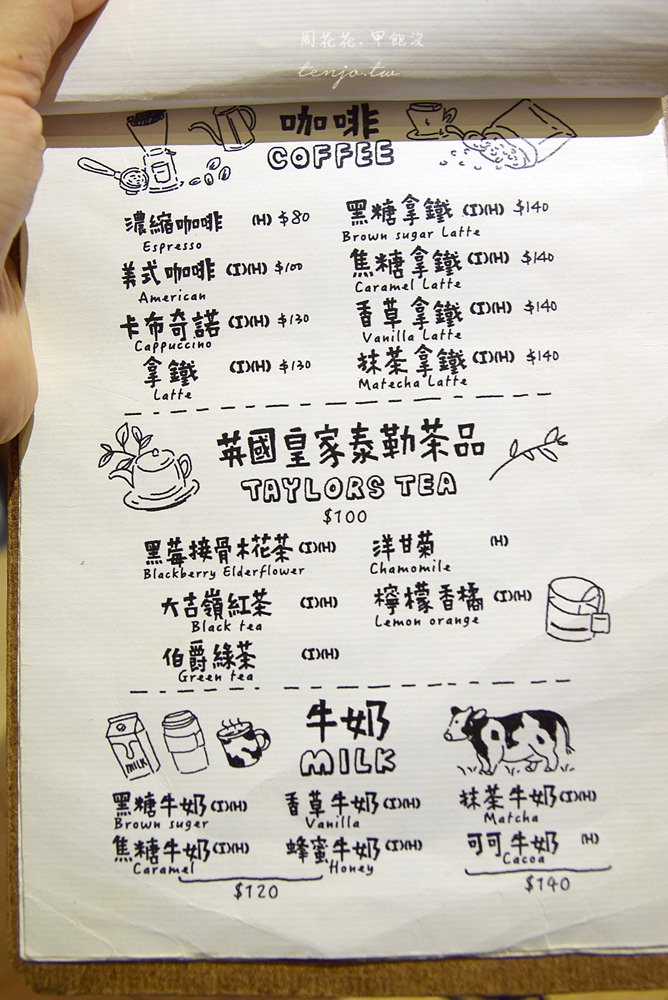 周花花,甲飽沒
tenjo.tw
咖啡
COFFEE
濃縮咖啡 (H) $80
Espresso
美式咖啡 (I)(H) $100
American
卡布奇諾 (I)(H) $130
Cappuccino
拿鐵 (I)(H) $130
Latte
黑糖拿鐵 (I)(H) $140
Brown sugar Latte
焦糖拿鐵 (I)(H) $140
Caramel Latte
香草拿鐵 (I)(H) $140
Vanilla Latte
抹茶拿鐵 (I)(H) $140
Matecha Latte
英國皇家泰勒茶品
TAYLORS TEA
$100
黑莓接骨木花茶 (I)(H)
Blackberry Elderflower
大吉嶺紅茶 (I)(H)
Black tea
伯爵綠茶 (I)(H)
Green tea
洋甘菊 (H)
Chamomile
檸檬香橘 (I)(H)
Lemon orange
MILK
牛奶
MILK
黑糖牛奶 (I)(H)
Brown suger
焦糖牛奶 (I)(H)
Caramel
香草牛奶 (I)(H)
Vanilla
蜂蜜牛奶 (I)(H)
Honey
$120
抹茶牛奶 (I)(H)
Matcha
可可牛奶 (H)
Cacoa
$140